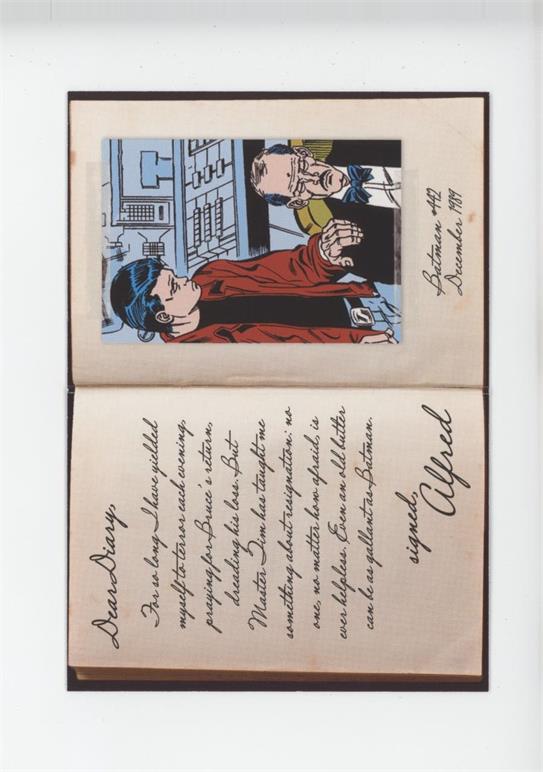 Dear Diary,
For so long I have yielded
myself to terror each evening,
praying for Bruce's return,
dreading his loss. But
Master Tim has taught me
something about resignation: no
one, no matter how afraid, is
ever helpless. Even an old butler
can be as gallant as Batman.
signed,
Alfred
Batman #442
December 1989